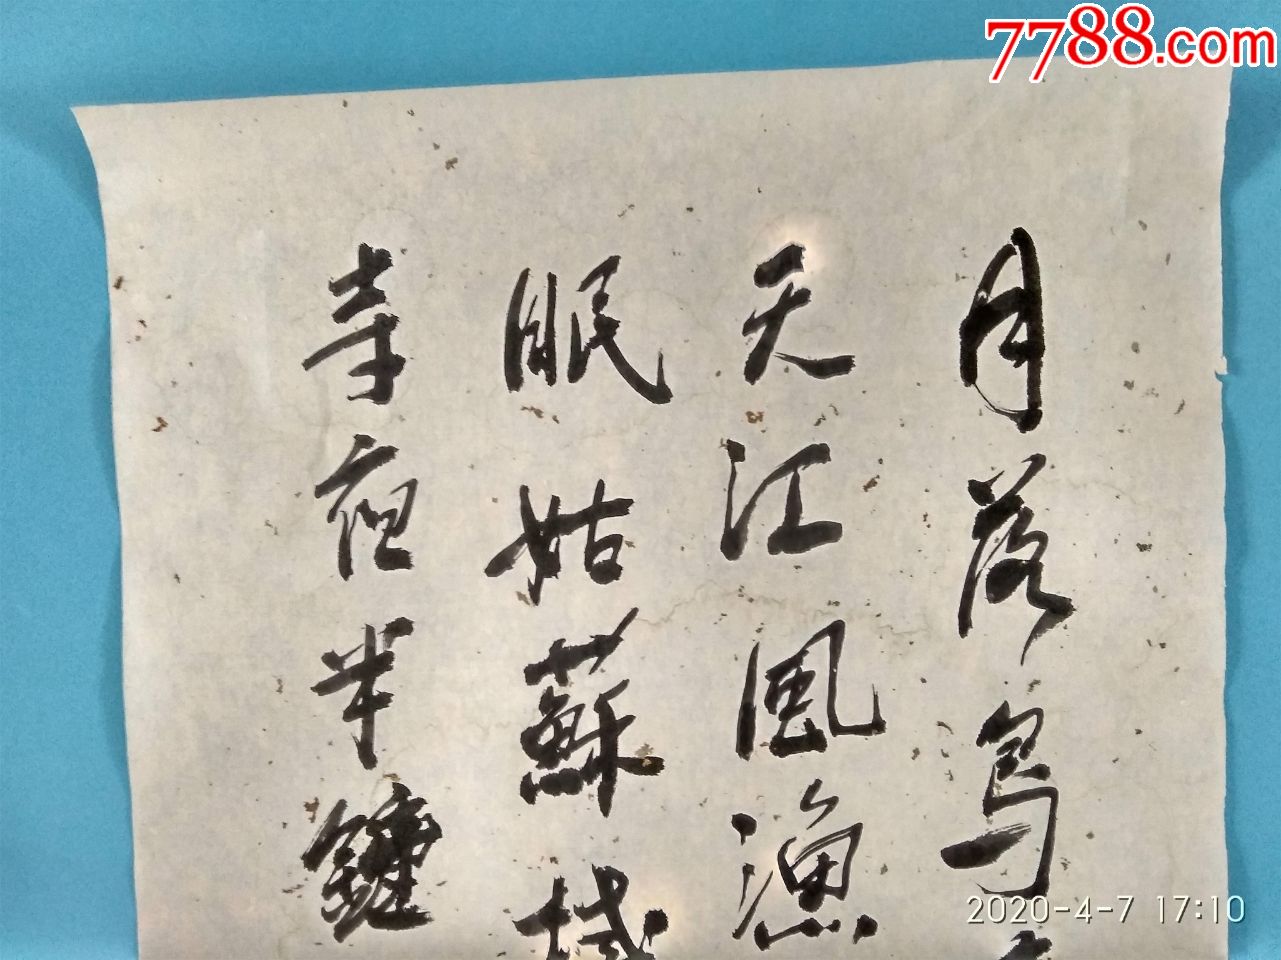 7788.com
月落烏
天江風漁
眠姑蘇城
寺夜半鐘
2020-4-7 17:10